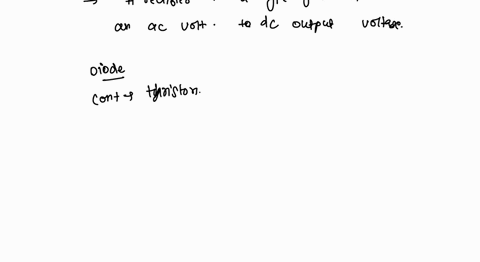 → A rectifier
an ac volt. to dc output voltage.
Diode
cont → thyristor.